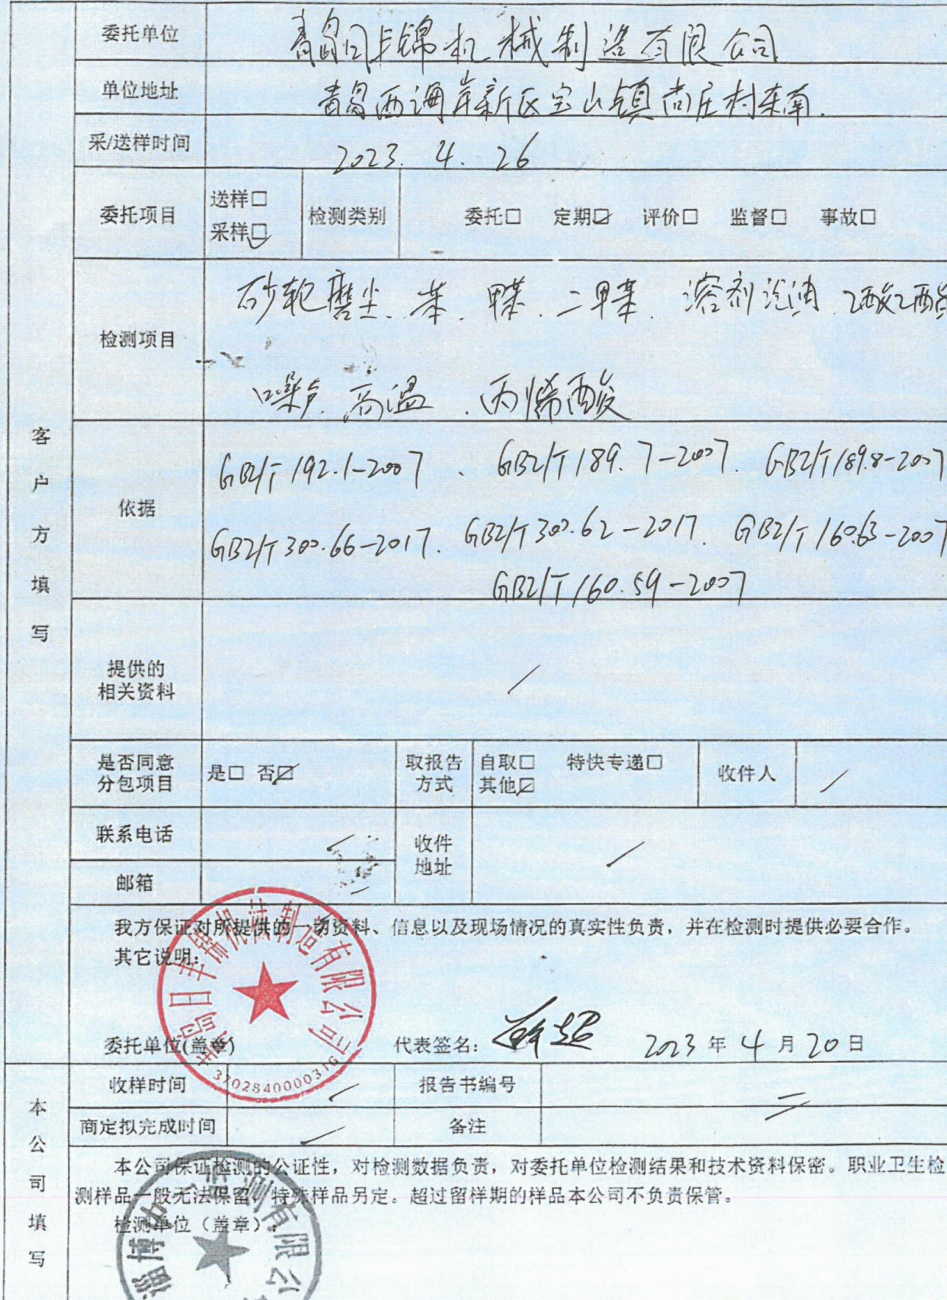 委托单位 青岛日丰锦机械制造有限公司
单位地址 青岛西海岸新区宝山镇尚庄村东南.
采/送样时间 2023. 4. 26
委托项目 送样□ 采样☑ 检测类别 委托□ 定期☑ 评价□ 监督□ 事故□
检测项目 砂轮磨尘. 苯. 甲苯. 二甲苯. 溶剂汽油 乙酸乙酯
噪声 高温 . 丙烯酸
客户方填写
依据 GBZ/T 192.1-2007 GBZ/T 189.7-2007 GBZ/T 189.8-2007
GBZ/T 300.66-2017 GBZ/T 300.62-2017. GBZ/T 160.63-2007
GBZ/T 160.59-2007
提供的相关资料 /
是否同意分包项目 是□ 否☑ 取报告方式 自取□ 其他☑ 特快专递□ 收件人 /
联系电话 / 收件地址 /
邮箱 /
我方保证对所提供的一切资料、信息以及现场情况的真实性负责，并在检测时提供必要合作。
其它说明：
委托单位(盖章) 代表签名： 2023 年 4 月 20 日
3702840000316
本公司填写
收样时间 / 报告书编号
商定拟完成时间 / 备注
本公司保证检测的公证性，对检测数据负责，对委托单位检测结果和技术资料保密。职业卫生检
测样品一般无法保留，特殊样品另定。超过留样期的样品本公司不负责保管。
检测单位（盖章）：